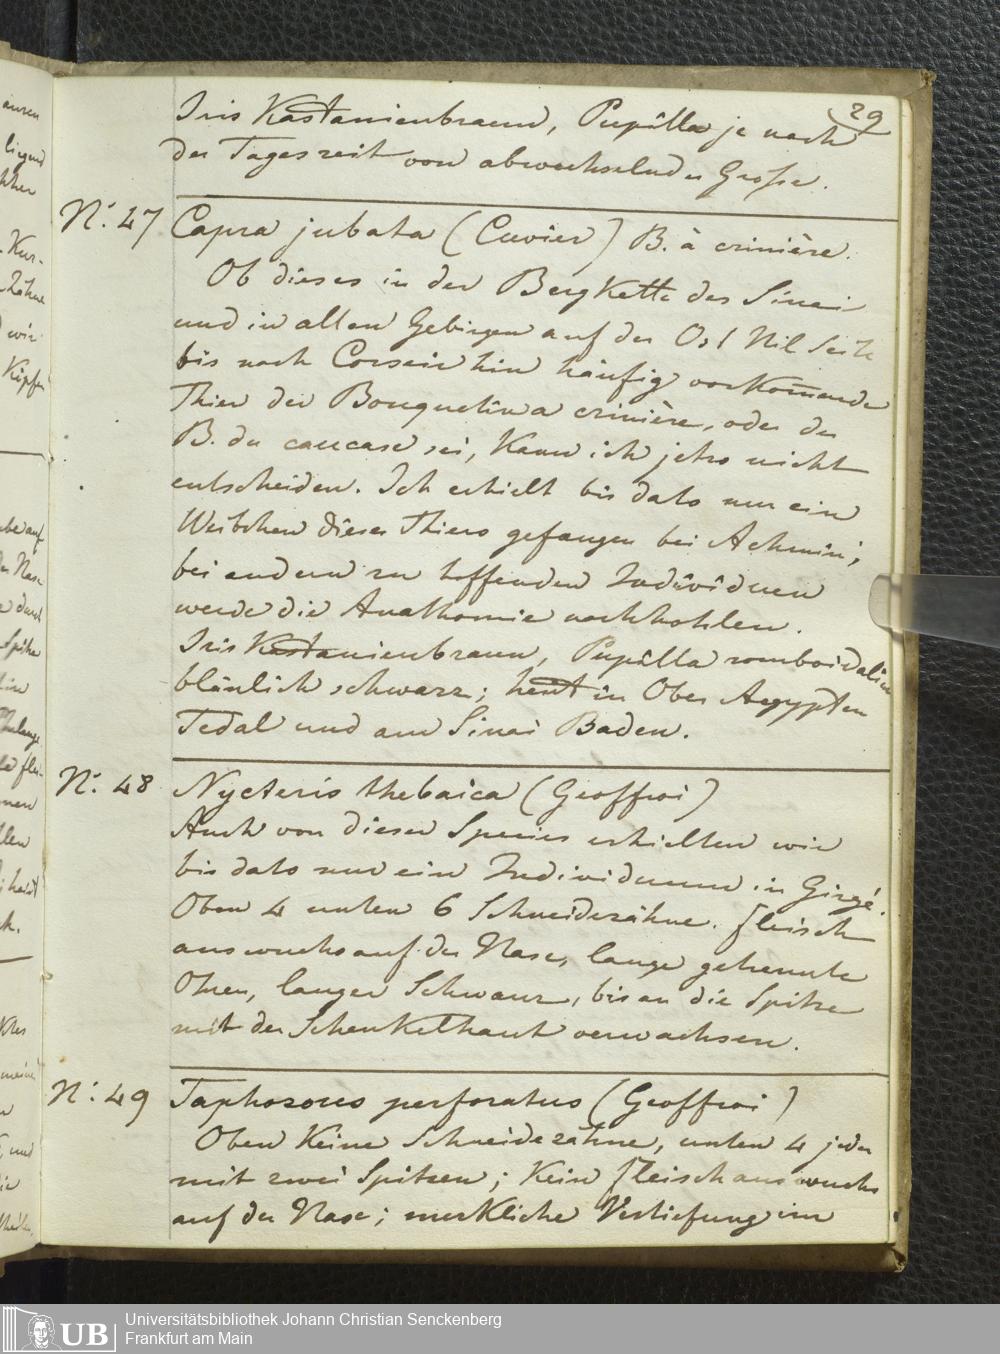 29
Iris Kastanienbraun, Pupilla je nach
der Tageszeit von abwechselnder Grösse.
N: 47 Capra jubata (Cuvier) B. à crinière.
Ob dieses in der BergKette des Sinai
und in allen Gebirgen auf der Ost Nil Seite
bis nach Cosseir hin häufig vorKom̄ende
Thier der Bouquetin a crinière, oder der
B. du caucase sei, Kann ich jetzo nicht
entscheiden. Ich erhielt bis dato nur ein
Weibchen dieses Thiers gefangen bei Achmin;
bei andern zu hoffenden Individuen
werde die Anathomie nachhohlen.
Iris Kastanienbraun, Pupilla romboidalisch
bläulich schwarz; heist in Ober Aegypten
Tedal und am Sinai Baden.
N: 48 Nycteris thebaica (Geoffroi)
Auch von dieser Species erhielten wir
bis dato nur ein Individuum in Girgé.
Oben 4 unten 6 Schneidezähne. fleisch
auswuchs auf der Nase, lange getrennte
Ohren, langer Schwanz, bis an die Spitze
mit der SchenKelhaut verwachsen.
N: 49 Taphozous perforatus (Geoffroi)
Oben Keine Schneidezähne, unten 4 jeder
mit zwei Spitzen; Kein fleischauswuchs
auf der Nase; merKliche Vertiefung im
UB Universitätsbibliothek Johann Christian Senckenberg
Frankfurt am Main